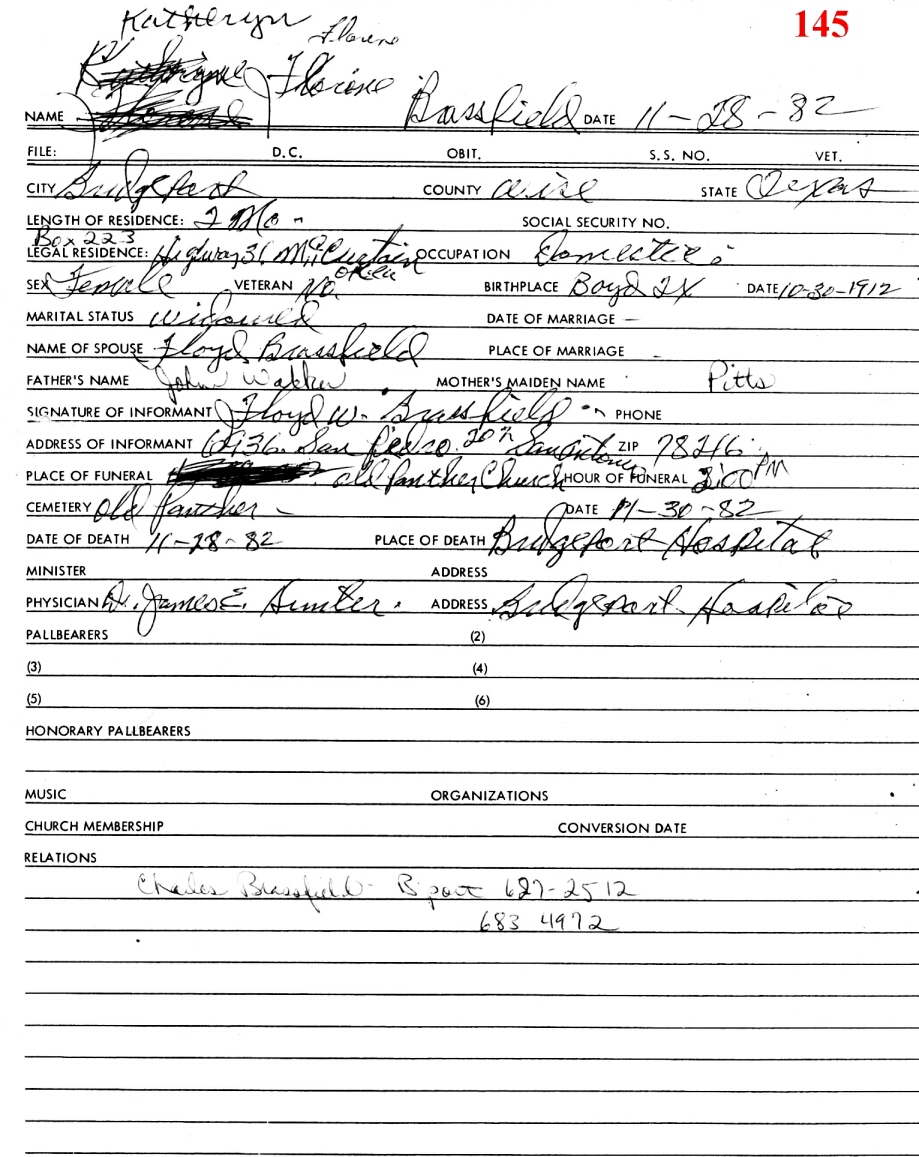 145
Katheryn
Florene
Florene
NAME Brassfield DATE 11-28-82
FILE: D.C. OBIT. S.S. NO. VET.
CITY Bridgeport COUNTY Wise STATE Texas
LENGTH OF RESIDENCE: 2 Mo SOCIAL SECURITY NO.
Box 223
LEGAL RESIDENCE: Higway 31 McCurtain OCCUPATION Domestic
Okla
SEX Female VETERAN No. BIRTHPLACE Boyd TX DATE 10-30-1912
MARITAL STATUS Widowed DATE OF MARRIAGE —
NAME OF SPOUSE Floyd Brassfield PLACE OF MARRIAGE
FATHER'S NAME John Walker MOTHER'S MAIDEN NAME Pitts
SIGNATURE OF INFORMANT Floyd W. Brassfield PHONE
ADDRESS OF INFORMANT San Pedro ZIP 78216
PLACE OF FUNERAL Old Panther Church HOUR OF FUNERAL 2:00 PM
CEMETERY Old Panther DATE 11-30-82
DATE OF DEATH 11-28-82 PLACE OF DEATH Bridgeport Hospital
MINISTER ADDRESS
PHYSICIAN Dr. James E. Hunter. ADDRESS Bridgeport Hospital
PALLBEARERS (2)
(3) (4)
(5) (6)
HONORARY PALLBEARERS
MUSIC ORGANIZATIONS
CHURCH MEMBERSHIP CONVERSION DATE
RELATIONS
Charles Brassfield - B'port 627-2512
683 4972